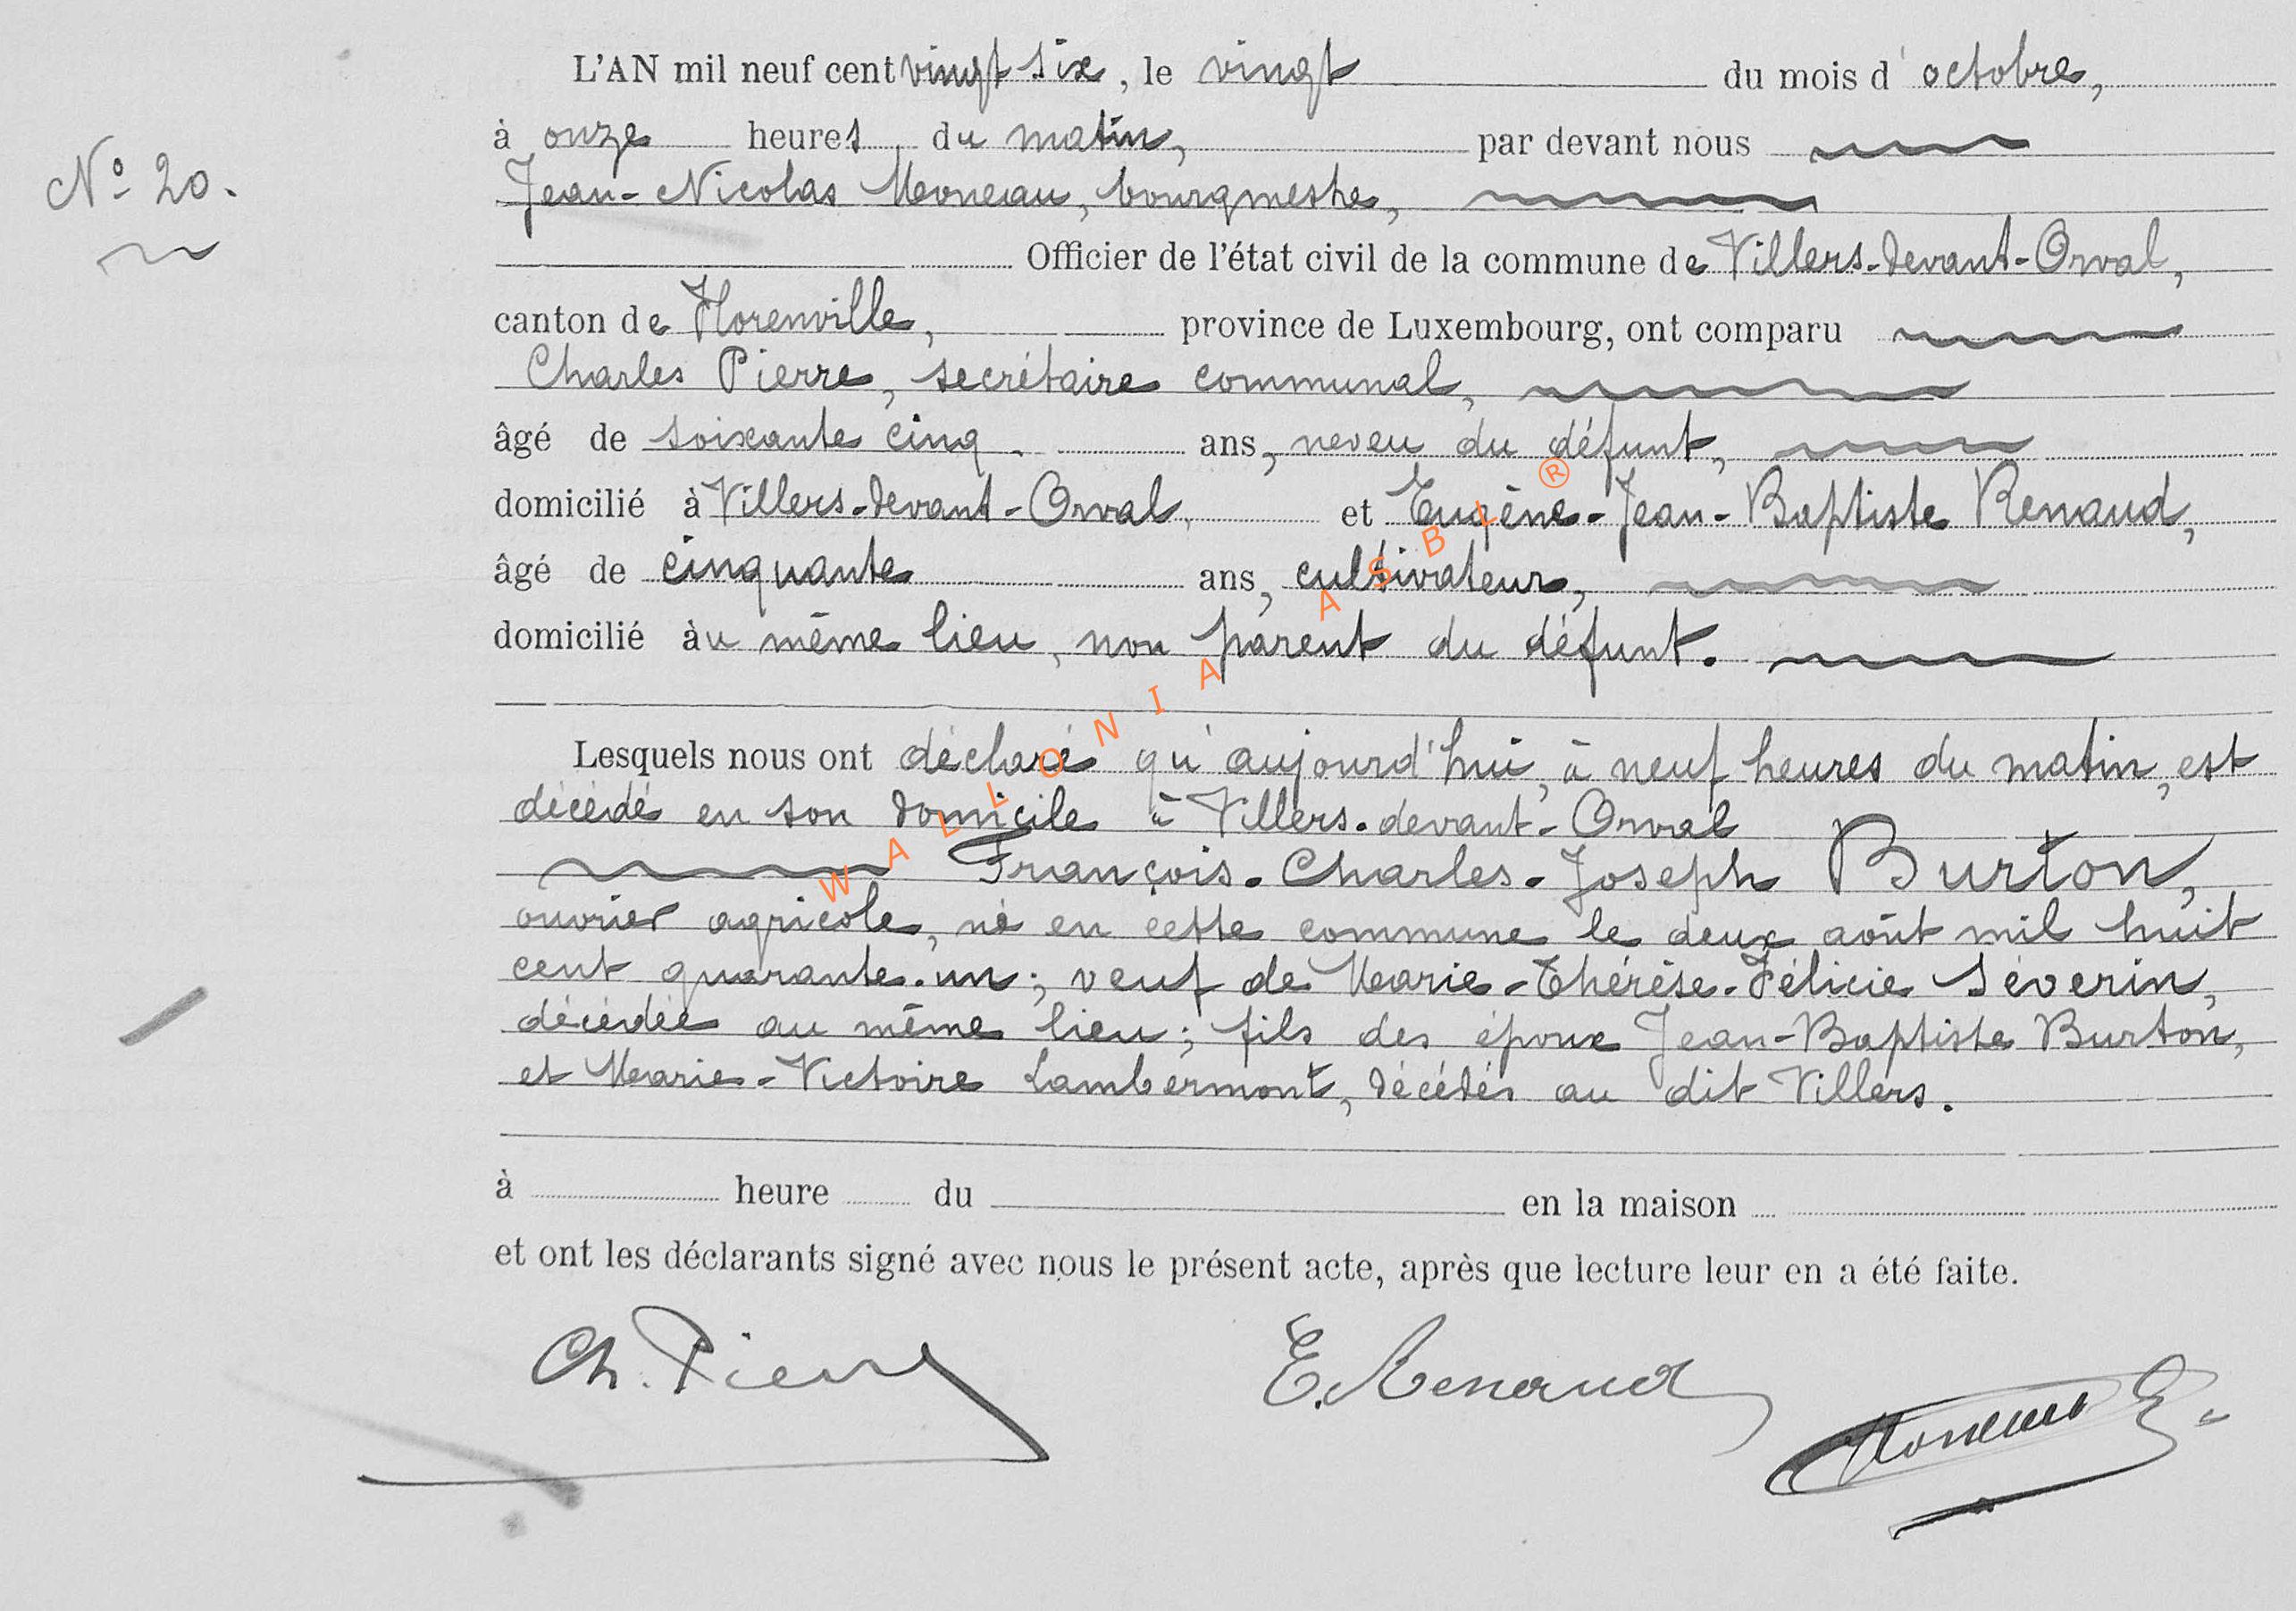 L'AN mil neuf cent vingt six, le vingt du mois d'octobre,
à onze heures du matin, par devant nous
N° 20.
Jean-Nicolas Moneau, bourgmestre,
Officier de l'état civil de la commune de Villers-devant-Orval,
canton de Florenville, province de Luxembourg, ont comparu
Charles Pierre, secrétaire communal,
âgé de soixante cinq ans, neveu du défunt,
domicilié à Villers-devant-Orval, et Eugène-Jean-Baptiste Renaud,
âgé de cinquante ans, cultivateur,
domicilié àu même lieu, non parent du défunt.
Lesquels nous ont déclaré qu'aujourd'hui, à neuf heures du matin, est
décédé en son domicile à Villers-devant-Orval
François-Charles-Joseph Burton,
ouvrier agricole, né en cette commune le deux août mil huit
cent quarante-un; veuf de Marie-Thérèse-Félicie Séverin,
décédée au même lieu; fils des époux Jean-Baptiste Burton,
et Marie-Victoire Lambermont, décédés au dit Villers.
à heure du en la maison
et ont les déclarants signé avec nous le présent acte, après que lecture leur en a été faite.
Ch. Pierre
E. Renaud
Moneau
WALLONIA ASBL ®